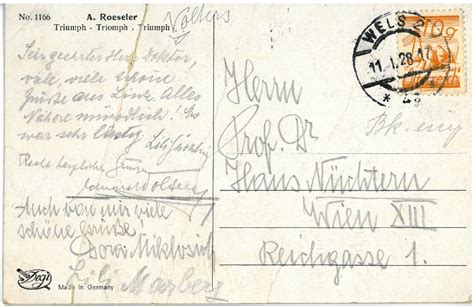 No. 1166
A. Roeseler
Triumph - Triomph - Triumph
Wolters
Sehr geehrter Herr Doktor,
viele, viele schöne
Grüße aus Linz. Alles
Nähere mündlich! Es
war sehr lustig
Lili
Recht herzliche Grüße
Auch von mir viele
schöne Grüße
Dora Miklosich
Lili Marberg
Degi
Made in Germany
WELS 2
11.I.28.17
10g
Herrn
Prof. Dr
Hans Nüchtern
Wien XIII
Reichgasse 1.